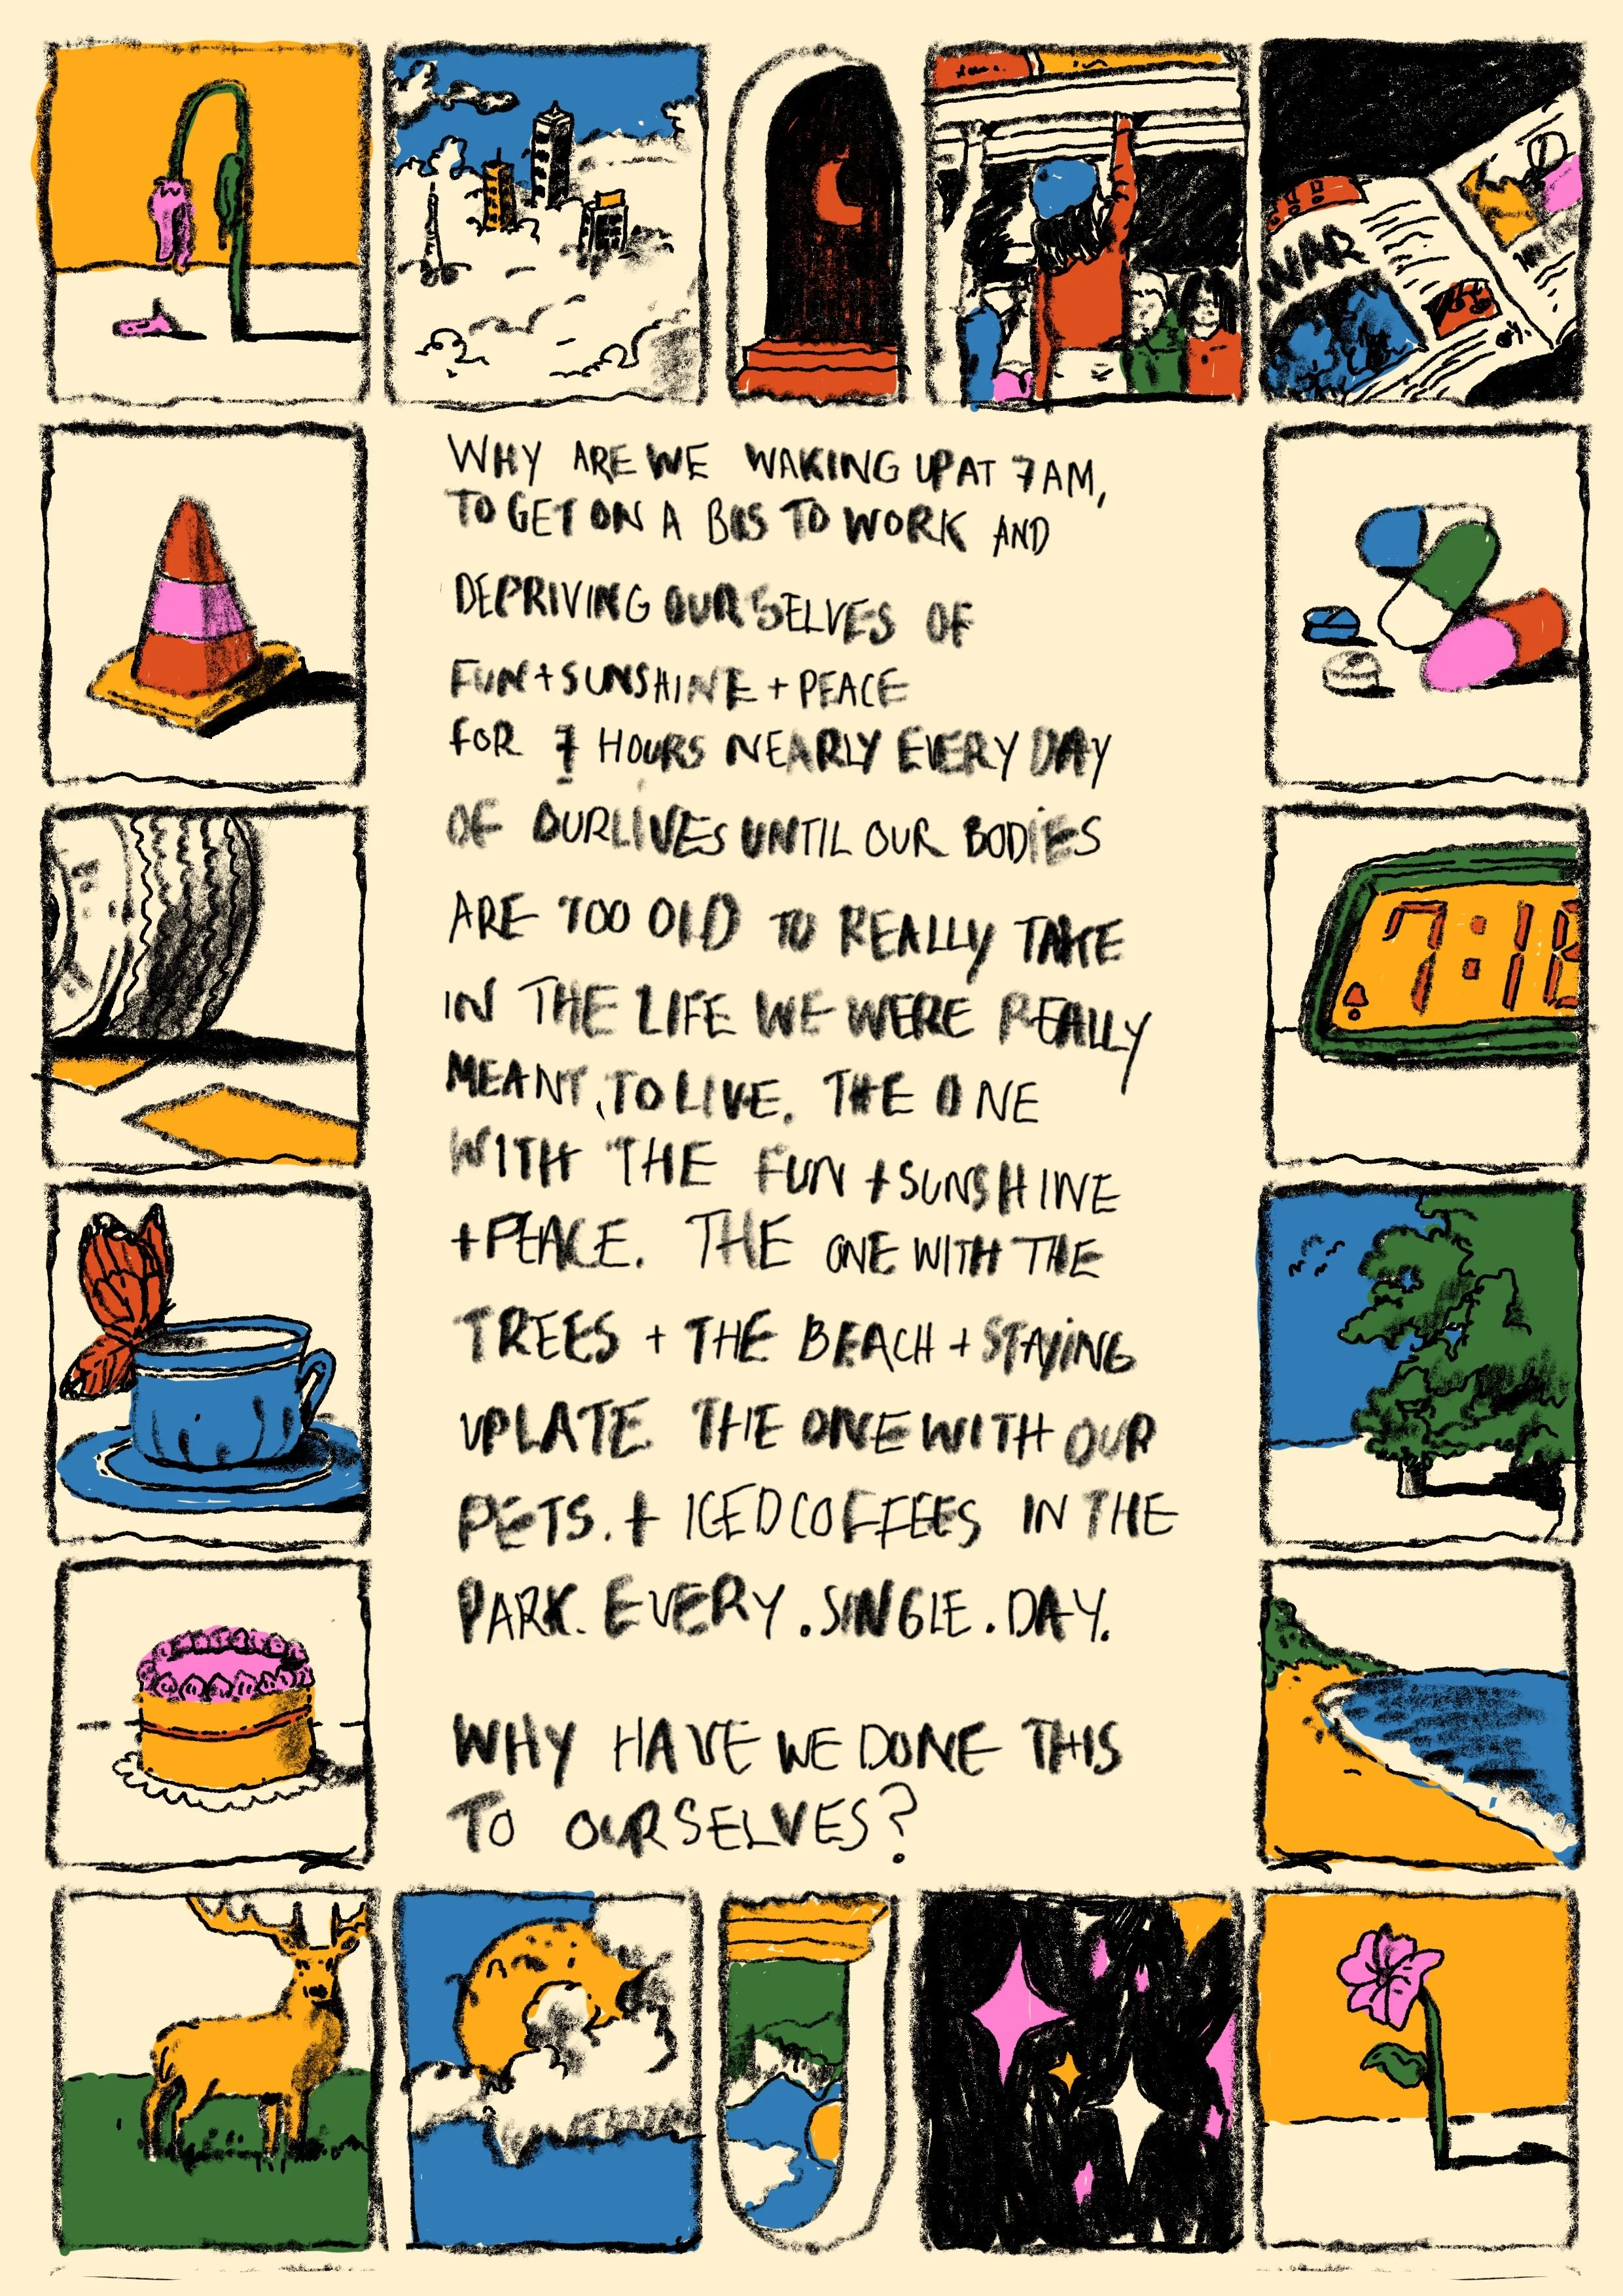 WAR
WHY ARE WE WAKING UP AT 7AM,
TO GET ON A BUS TO WORK AND
DEPRIVING OURSELVES OF
FUN + SUNSHINE + PEACE
FOR 7 HOURS NEARLY EVERY DAY
OF OUR LIVES UNTIL OUR BODIES
ARE TOO OLD TO REALLY TAKE
IN THE LIFE WE WERE REALLY
MEANT, TO LIVE. THE ONE
WITH THE FUN + SUNSHINE
+ PEACE. THE ONE WITH THE
TREES + THE BEACH + STAYING
UP LATE. THE ONE WITH OUR
PETS. + ICED COFFEES IN THE
PARK. EVERY. SINGLE. DAY.
WHY HAVE WE DONE THIS
TO OURSELVES?